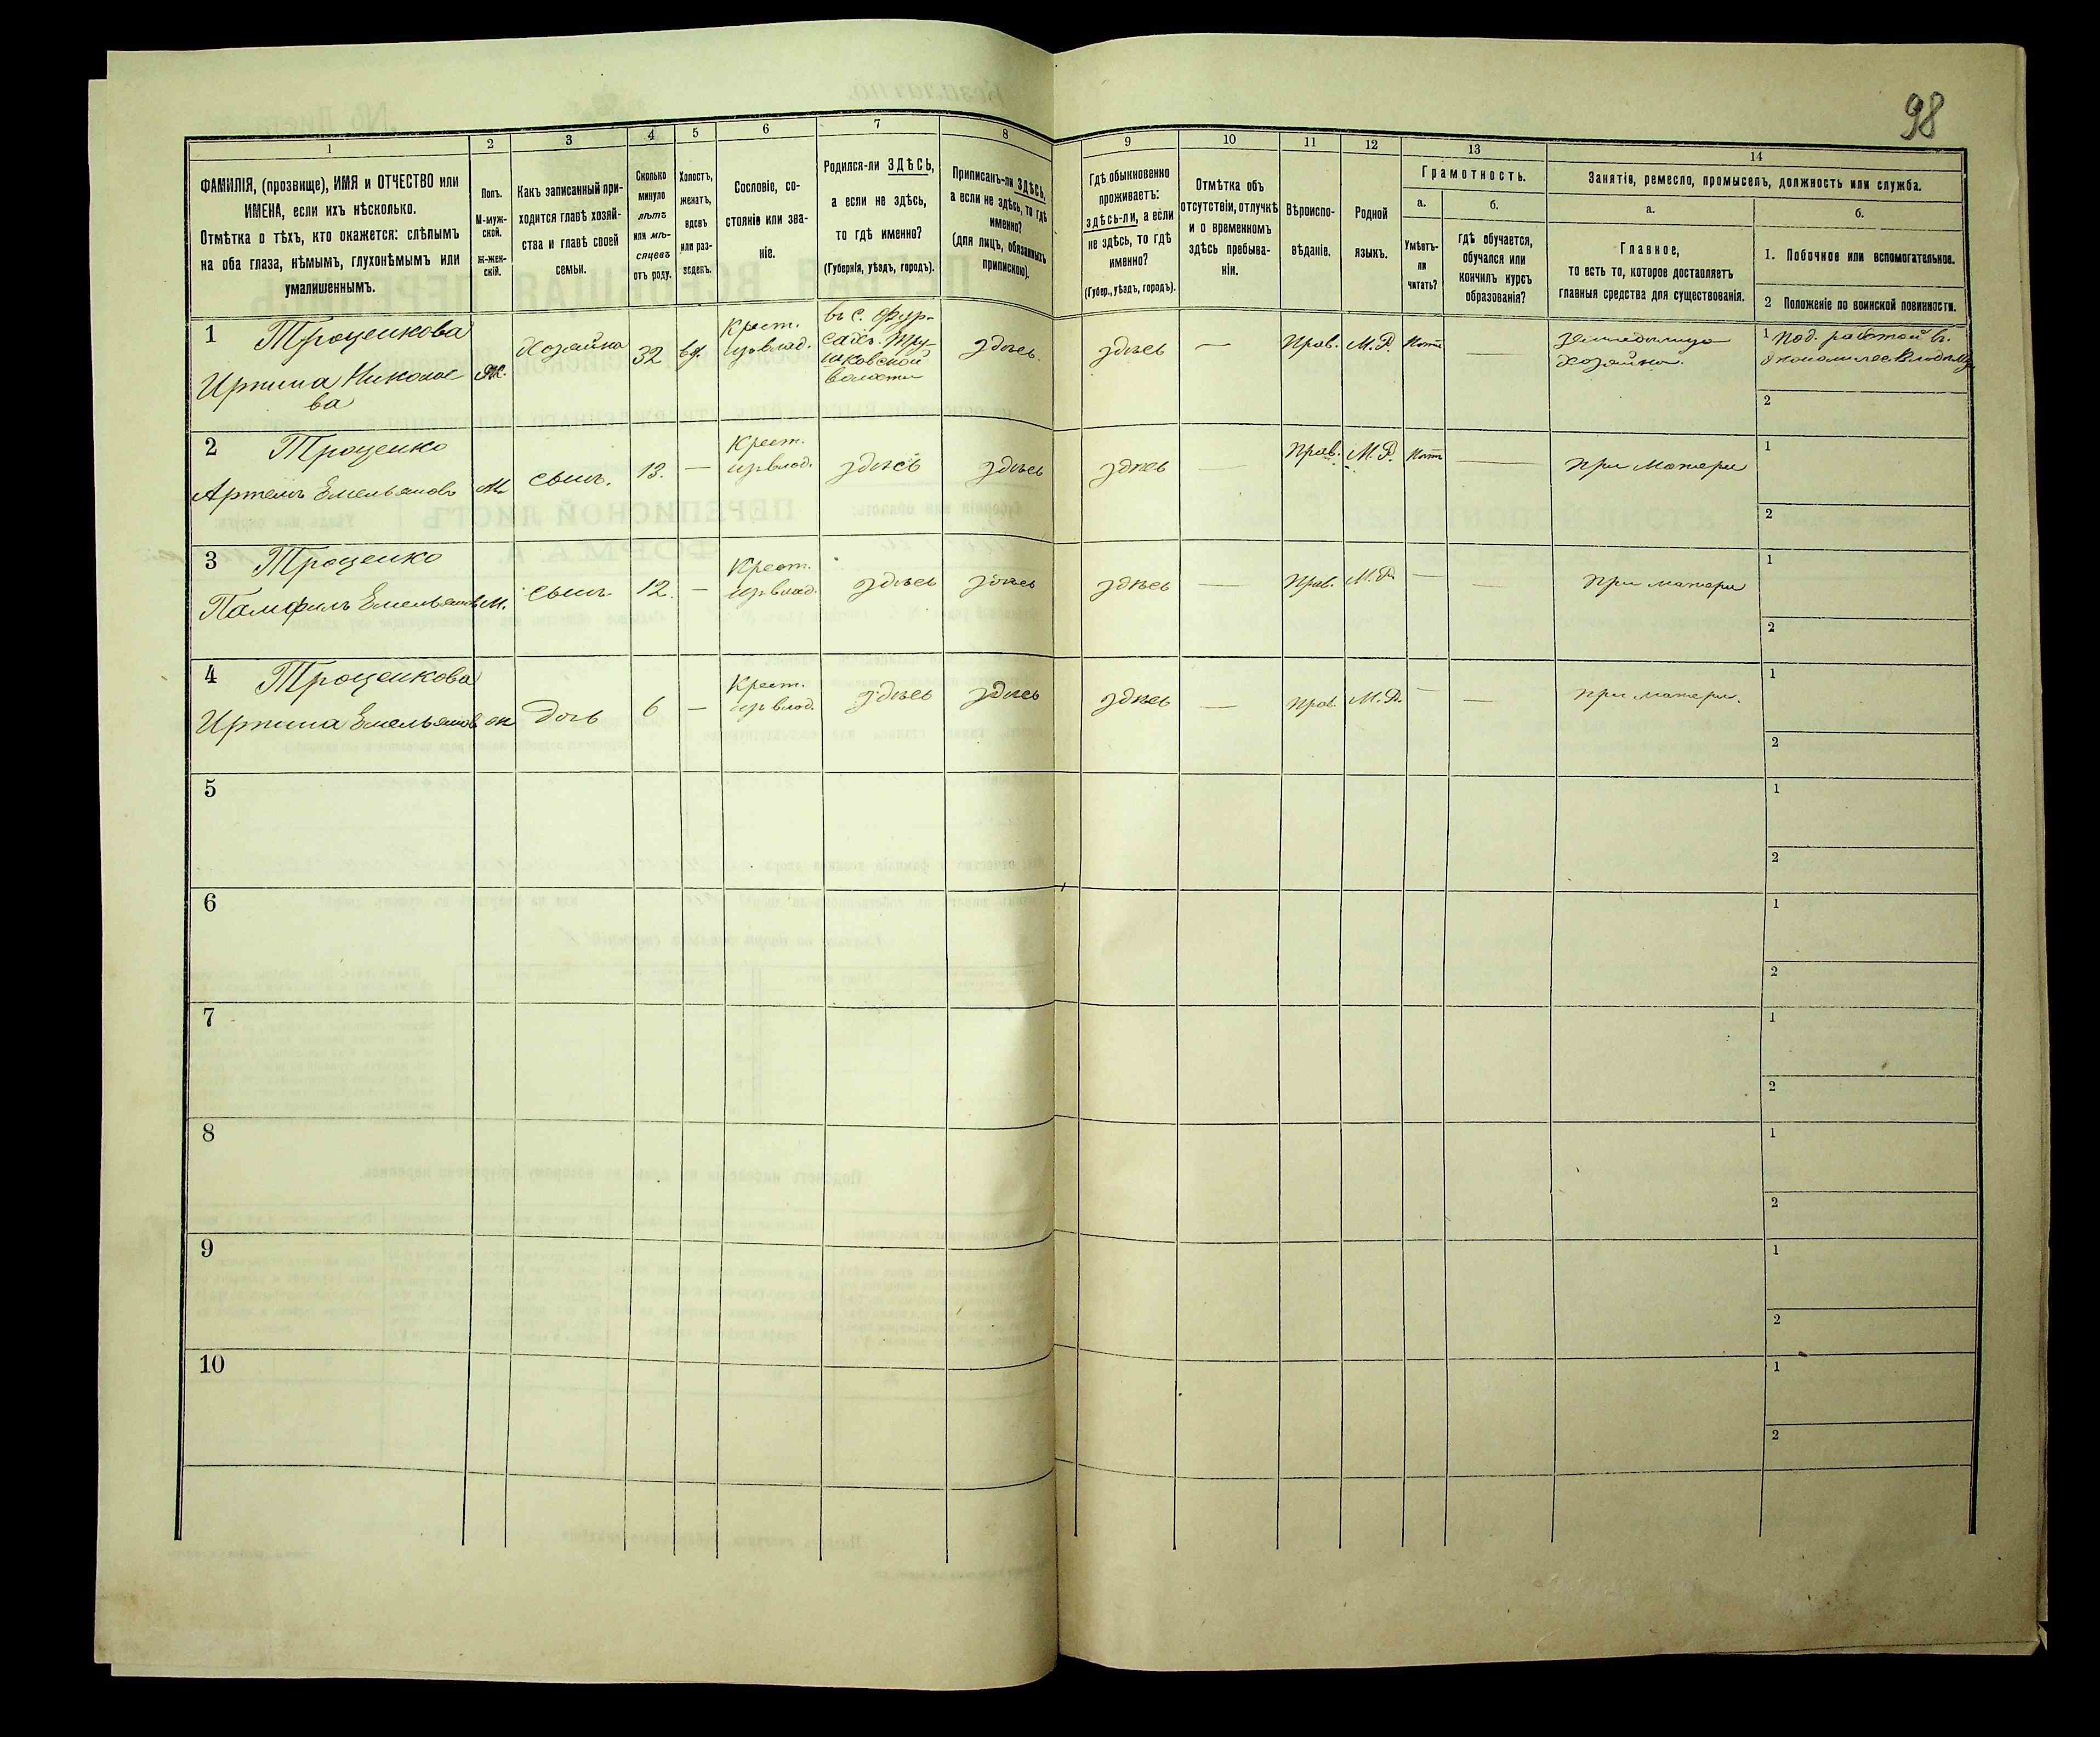 98
1 2 3 4 5 6 7 8 9 10 11 12 13 14
ФАМИЛІЯ, (прозвище), ИМЯ и ОТЧЕСТВО или
ИМЕНА, если ихъ нѣсколько.
Отмѣтка о тѣхъ, кто окажется: слѣпымъ
на оба глаза, нѣмымъ, глухонѣмымъ или
умалишеннымъ.
Полъ.
М-муж-
ской.
Ж-жен-
скій.
Какъ записанный при-
ходится главѣ хозяй-
ства и главѣ своей
семьи.
Сколько
минуло
лѣтъ
или мѣ-
сяцевъ
отъ роду.
Холостъ,
женатъ,
вдовъ
или раз-
веденъ.
Сословіе, со-
стояніе или зва-
ніе.
Родился-ли ЗДѢСЬ,
а если не здѣсь,
то гдѣ именно?
(Губернія, уѣздъ, городъ).
Приписанъ-ли ЗДѢСЬ,
а если не здѣсь, то гдѣ
именно?
(для лицъ, обязанныхъ
припискою).
Гдѣ обыкновенно
проживаетъ:
здѣсь-ли, а если
не здѣсь, то гдѣ
именно?
(Губер., уѣздъ, городъ).
Отмѣтка объ
отсутствіи, отлучкѣ
и о временномъ
здѣсь пребыва-
ніи.
Вѣроиспо-
вѣданіе.
Родной
языкъ.
Грамотность.
а.
Умѣетъ-
ли
читать?
б.
гдѣ обучается,
обучался или
кончилъ курсъ
образованія?
Занятія, ремесло, промыселъ, должность или служба.
а.
Главное,
то есть то, которое доставляетъ
главныя средства для существованія.
б.
1. Побочное или вспомогательное.
2 Положеніе по воинской повинности.
1 Троценкова
Ирина Николае
ва
Ж.
Хозяйка
32
вд.
Крест.
изъ влад.
въ С. Фур-
волости
здѣсь.
здѣсь
—
Прав.
М. Р.
—
хозяйка.
1 Под. работой въ
2
2 Троценко
Артемъ Емельяновъ
М.
сынъ.
13.
—
Крест.
изъ влад.
здѣсь
здѣсь
здѣсь
—
Прав.
М. Р.
—
при матери
1
2
3 Троценко
Памфилъ Емельяновъ
М.
сынъ.
12.
—
Крест.
изъ влад.
здѣсь
здѣсь
здѣсь
—
Прав.
М. Р.
—
—
при матери
1
2
4 Троценкова
Ирина Емельянов
ж
дочь
6
—
Крест.
изъ влад.
здѣсь
здѣсь
здѣсь
—
Прав.
М. Р.
—
—
при матери.
1
2
5
1
2
6
1
2
7
1
2
8
1
2
9
1
2
10
1
2